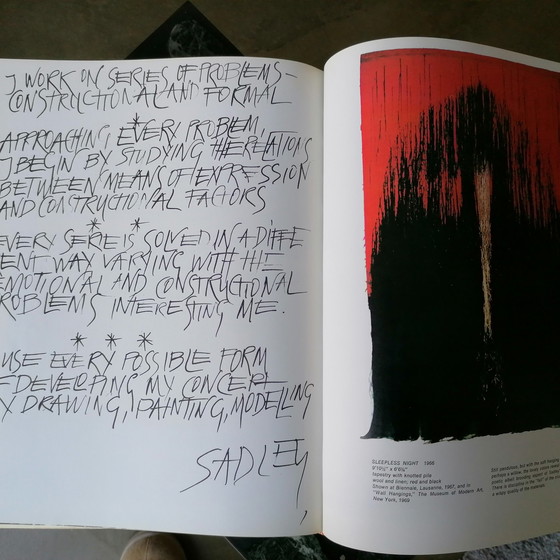 I WORK ON SERIES OF PROBLEMS –
CONSTRUCTIONAL AND FORMAL
*
APPROACHING EVERY PROBLEM,
I BEGIN BY STUDYING THE RELATIONS
BETWEEN MEANS OF EXPRESSION
AND CONSTRUCTIONAL FACTORS
* *
EVERY SERIE IS SOLVED IN A DIFFE
ENT WAY VARYING WITH THE
EMOTIONAL AND CONSTRUCTIONAL
ROBLEMS INTERESTING ME.
* * *
USE EVERY POSSIBLE FORM
F DEVELOPING MY CONCEPT
Y DRAWING, PAINTING, MODELLING
SADLEY
SLEEPLESS NIGHT 1966
tapestry with knotted pile
wool and linen; red and black
Shown at Biennale, Lausanne, 1967, and in
"Wall Hangings," The Museum of Modern Art,
New York, 1969